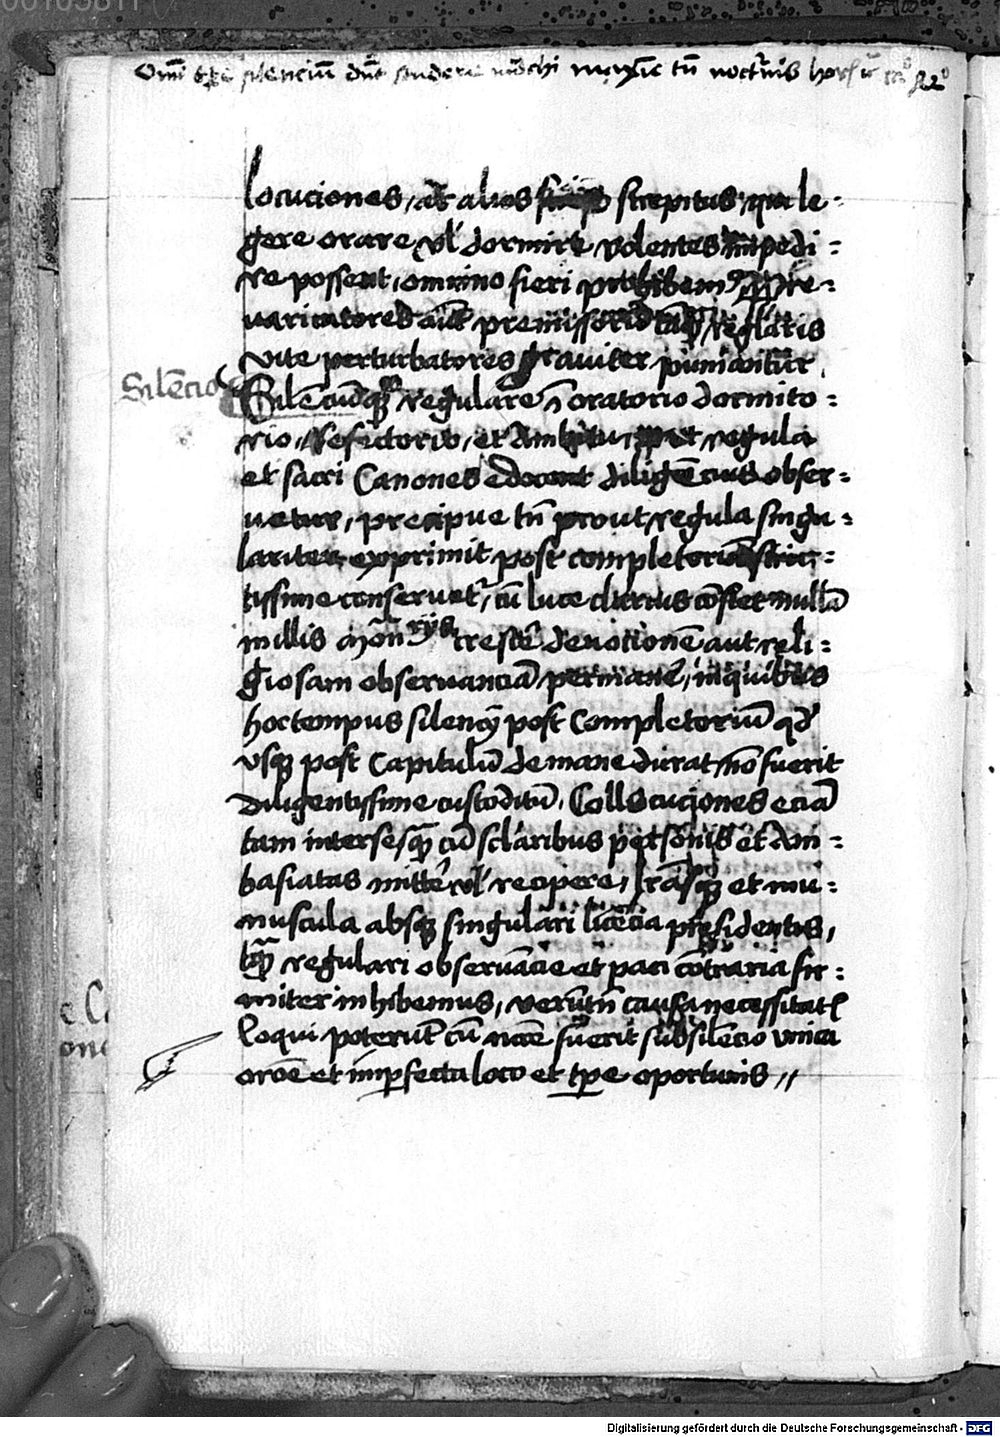 00103811
Omi tpe silenciu dnt studere mochi maxie tn nocturnis horis
locuciones, aut alios strepitus, qui le-
gere orare vl dormire volentes impedi-
re possent, omnino fieri prohibemus pre-
uaricatores aut premissorum tamquam reglaris
vite perturbatores grauiter puniantur.
Silencio
Silenciumque regulare in oratorio dormito-
rio, Refectorio, et Ambitu, prout regula
et sacri Canones edocent diligencius obser-
uetur, precipue tn prout regula singu-
lariter exprimit post completorium stric-
tissime conseruetur, cu luce clarius constet nulla
in illis Mon rijs crescere deuotionem aut reli-
giosam obseruancia permanere, in quibus
hoc tempus silencij post Completoriu qd
vsque post Capitulu de mane durat no fuerit
diligentissime custoditu, Collocuciones ecia
tam inter se, quam cu sclaribus personis et Am-
basiatas mittere vl recipere, lrasque et mu-
nuscula absque singulari licecia presidentis,
tamquam regulari obseruacie et paci contraria fir-
miter inhibemus, verutn causa necessitatis
loqui poterut cu necesse fuerit sub silecio vnica
oroe et imperfecta loco et tpe oportunis //
Digitalisierung gefördert durch die Deutsche Forschungsgemeinschaft - DFG